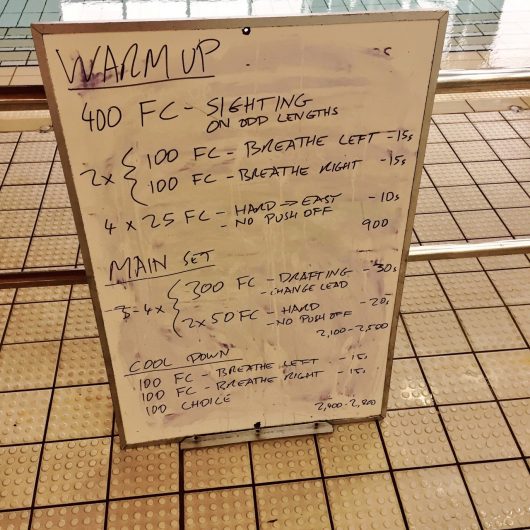 WARM UP
400 FC - SIGHTING
ON ODD LENGTHS
2x { 100 FC - BREATHE LEFT - 15s
100 FC - BREATHE RIGHT - 15s
4 x 25 FC - HARD → EASY - 10s
- NO PUSH OFF
900
MAIN SET
3-4x { 300 FC - DRAFTING - 30s
- CHANGE LEAD
2x50 FC - HARD - 20s
- NO PUSH OFF
2,100-2,500
COOL DOWN
100 FC - BREATHE LEFT - 15s
100 FC - BREATHE RIGHT - 15s
100 CHOICE
2,400-2,800